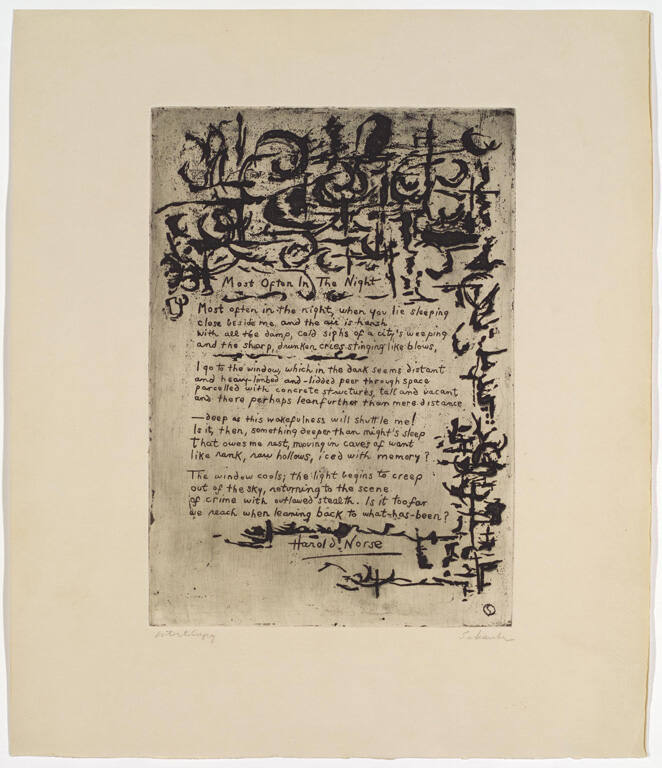 Most Often In The Night
Most often in the night, when you lie sleeping
close beside me and the air is harsh
with all the damp, cold sighs of a city's weeping
and the sharp, drunken cries stinging like blows,
I go to the window, which in the dark seems distant
and heavy-limbed and-lidded peer through space
parcelled with concrete structures, tall and vacant
and there perhaps lean further than mere distance
—deep as this wakefulness will shuttle me!
Is it, then, something deeper than night's sleep
that owes me rest, moving in caves of want
like rank, raw hollows, iced with memory?
The window cools; the light begins to creep
out of the sky, returning to the scene
of crime with outlawed stealth. Is it too far
we reach when leaning back to what-has-been?
Harold Norse